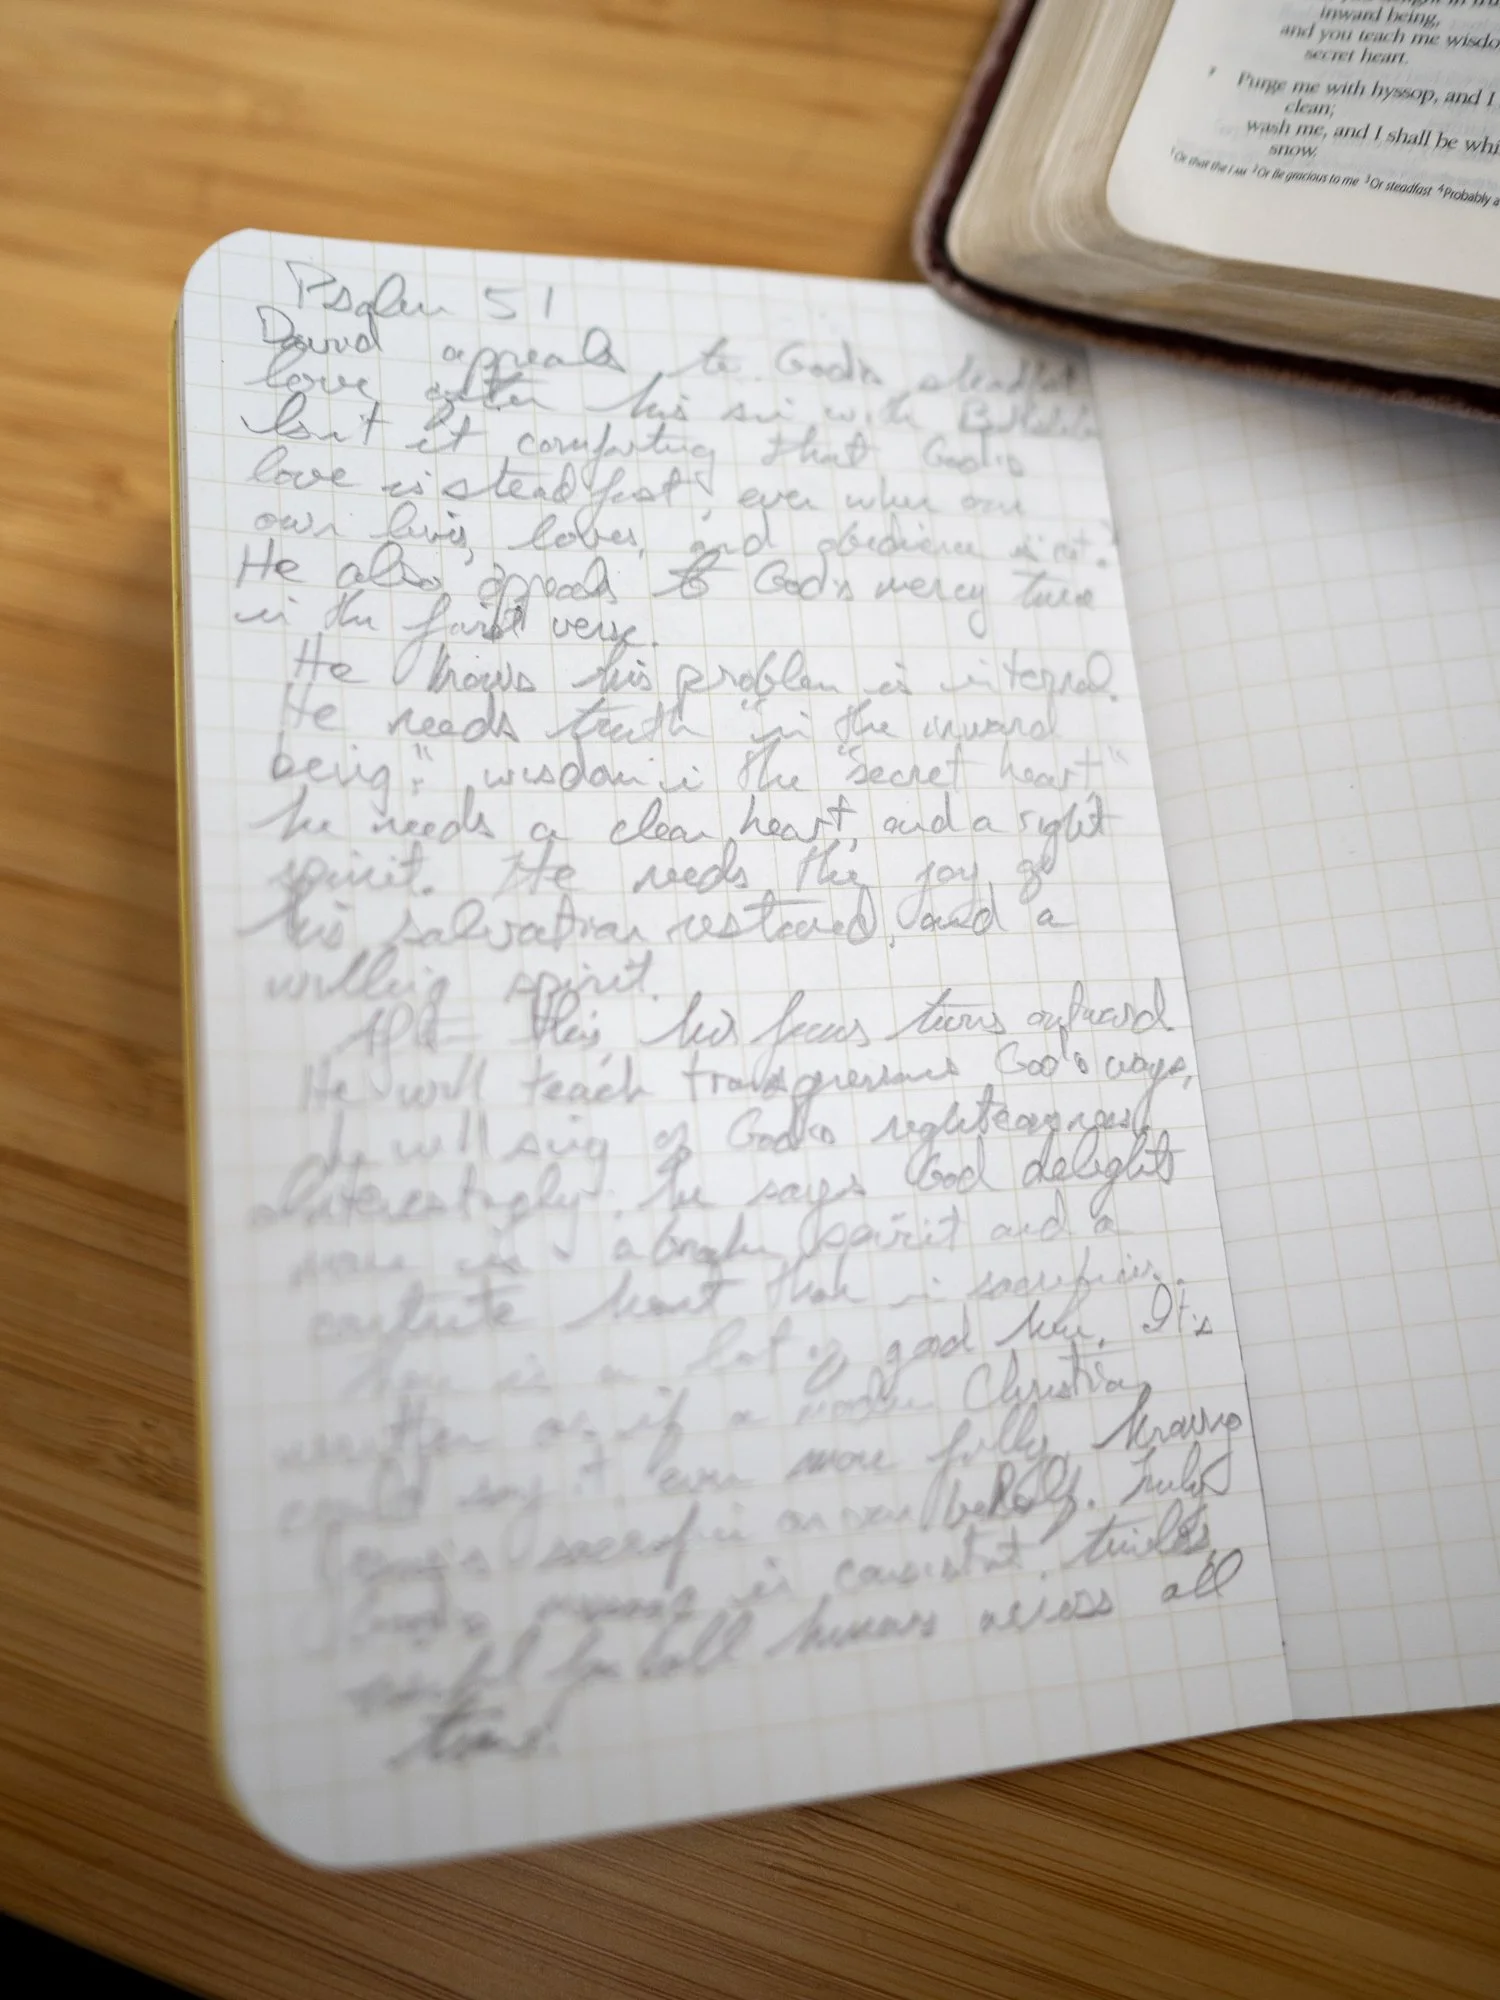 inward being,
and you teach me
secret heart.
7 Purge me with hyssop, and I
clean;
wash me, and I shall be
snow.
1 Or that the I AM 2 Or Be gracious to me 3 Or steadfast 4 Probably a
Psalm 51
David appeals to God's steadfast
love after his sin with
Isn't it comforting that God's
love is steadfast, even when our
own lives, loves, and obedience isn't.
He also appeals to God's mercy twice
in the first verse.
He knows his problem is internal.
He needs truth "in the inward
being", wisdom in the "secret heart"
he needs a clean heart, and a right
spirit. He needs the joy of
his salvation restored, and a
willing spirit.
After this, his focus turns outward.
He will teach transgressors God's ways,
he will sing of God's righteousness.
Interestingly, he says God delights
more in a broken spirit and a
contrite heart than in sacrifices.
There is a lot of good here. It's
written as if a modern Christian
could say it even more fully, knowing
sacrifice on our behalf. Truly
God's is consistent, timeless,
for all humans across all
time.